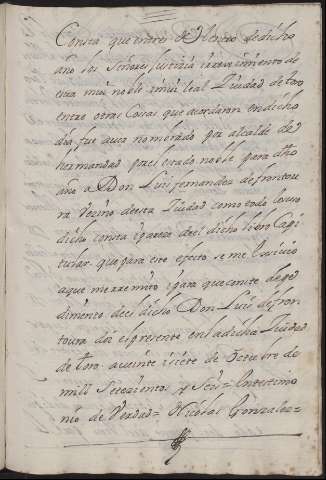 Consta que en tres de Henero de dicho
año los Señores Justicia i rexvimiento de
esta mui noble i mui leal Ciudad de toro
entre otras Cosas que acordaron en dicho
dia fue aver nombrado por alcalde de
hermandad por el estado noble para dho
año a Don Luis fernandez de frontou
ra vezino de esta Ciudad como todo lo suso
dicho consta i pareze de el dicho libro Capi
tular que para este efecto se me
a que me rremito i para que conste de pe
dimento de el dicho Don Luis de fron
toura doi el presente en la dicha Ciudad
de toro a veinte i siete de Octubre de
mill Setezientos y Seis = en testimo
nio de Verdad = Nicolas Gonzalez =